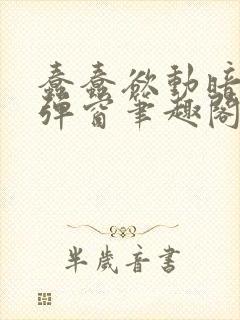 蠢蠢欲動暗
彈窗筆趣閣
半歲音書